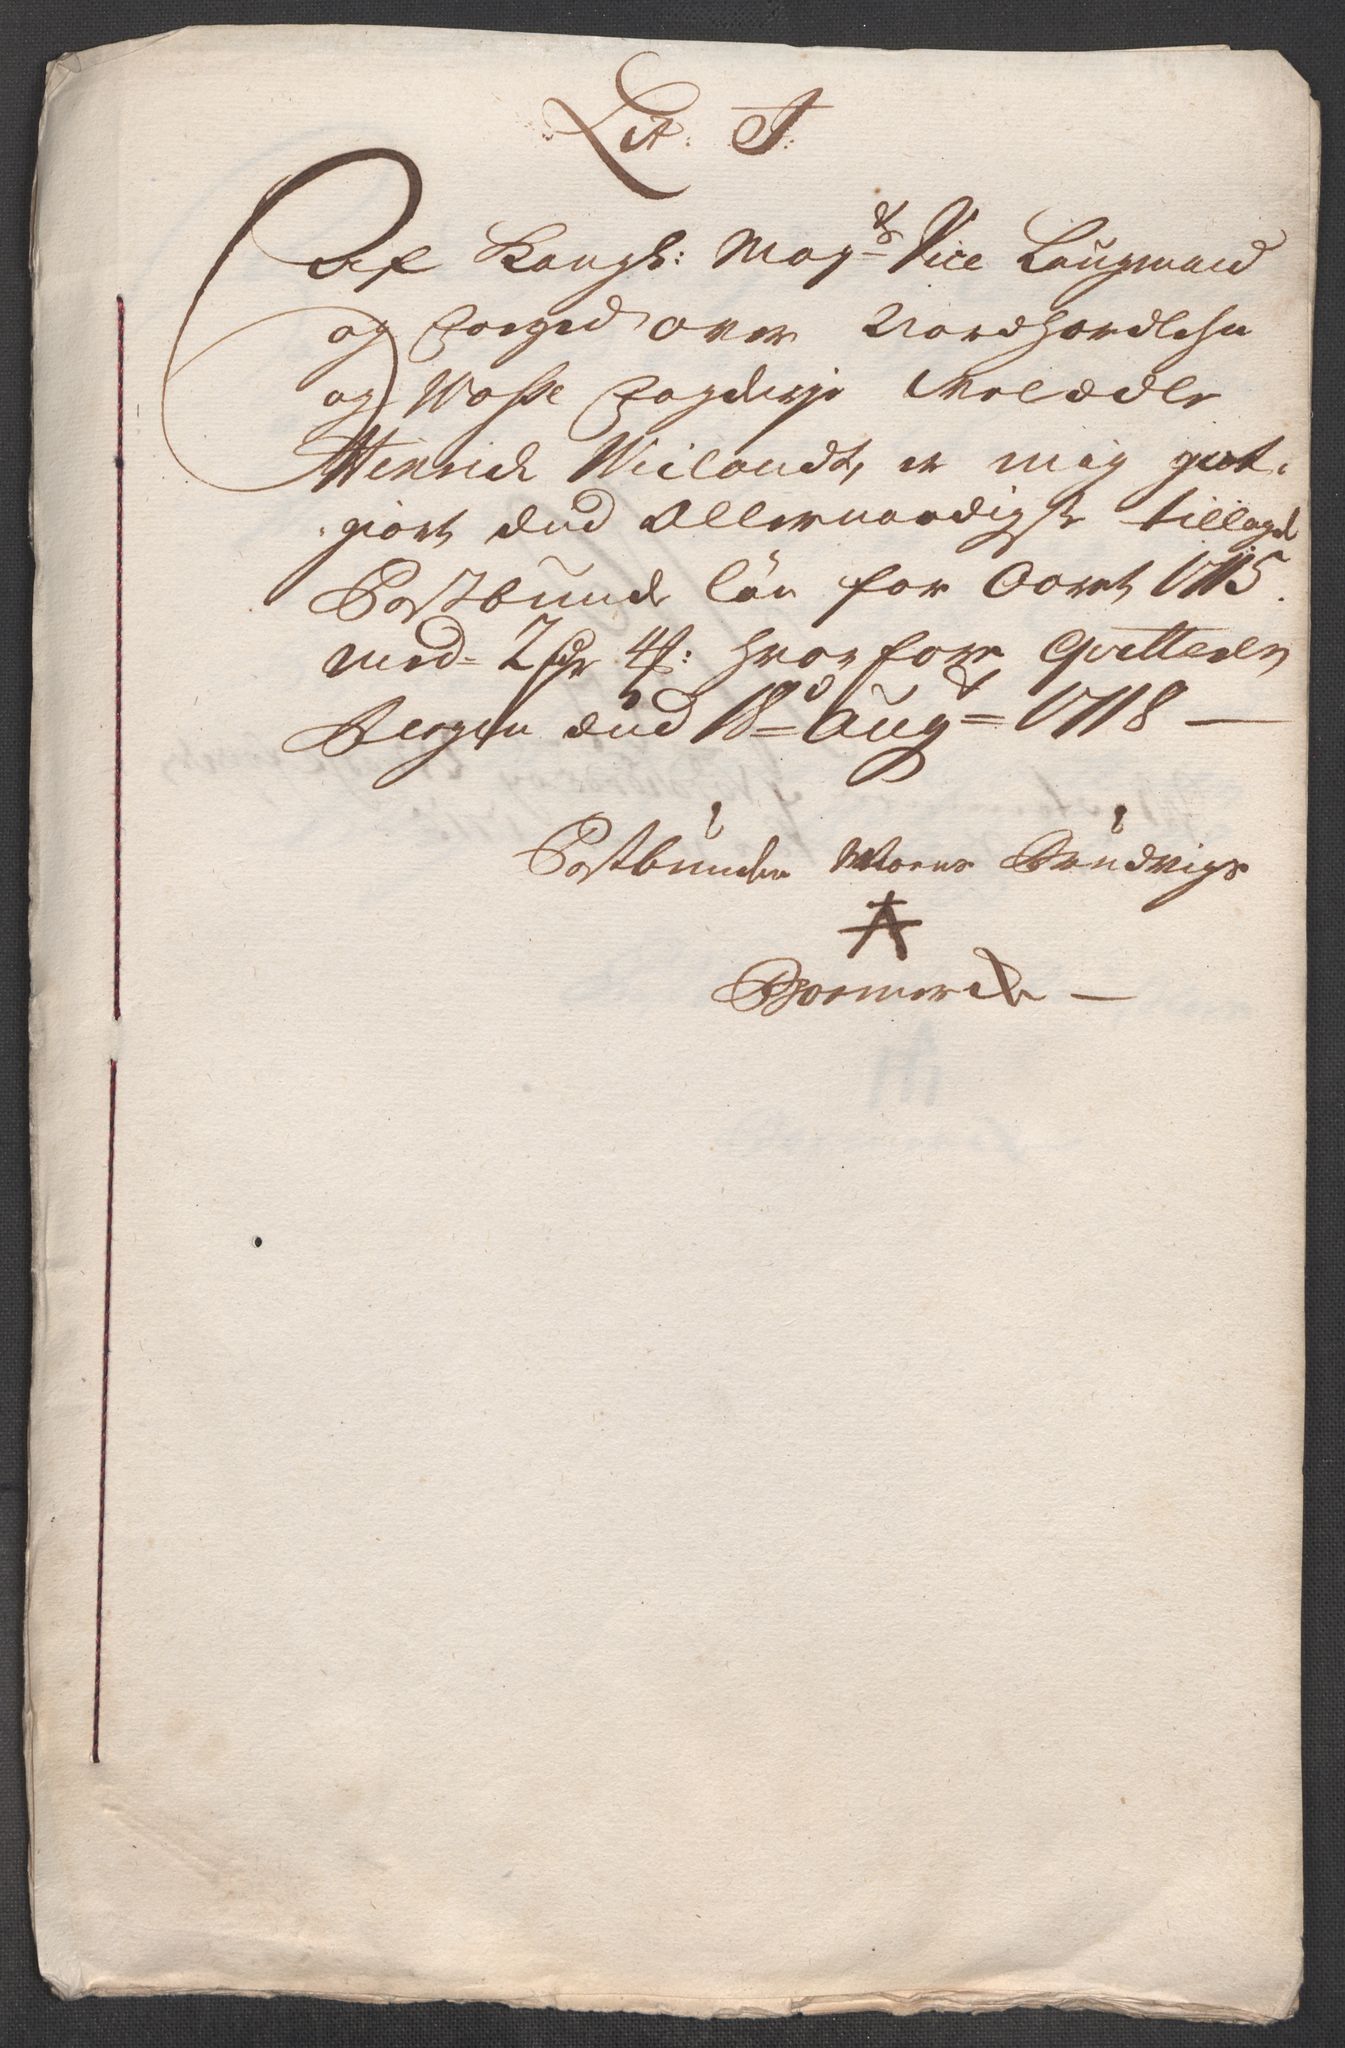 Lit: T:
Af Kongl: May.ts Vice Laugmand
og Foeged over Nordhordlehn
og Wosse Fogderje Velædle
Henrich Wielandt, er mig got-
giort dend Allernaadigste tillagde
Postbunde løn for Aaret 1715
med 2 4 hvor for Qvitteres
Bergen dend 18d Augt 1718 —
Postbunden Moens
Boemercke —